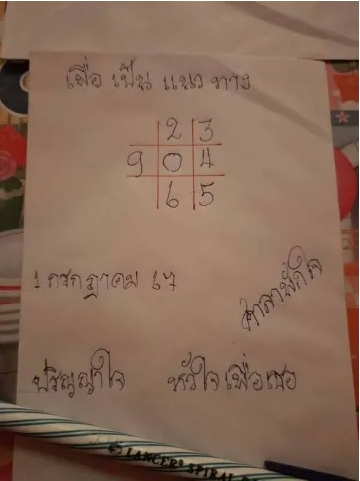 เพื่อ เป็น แนว ทาง
2 3
9 0 4
6 5
1 กรกฎาคม 67
ศาลาพักใจ
ปริญญาใจ หัวใจเพื่อเธอ
© LANCER SPIRAL